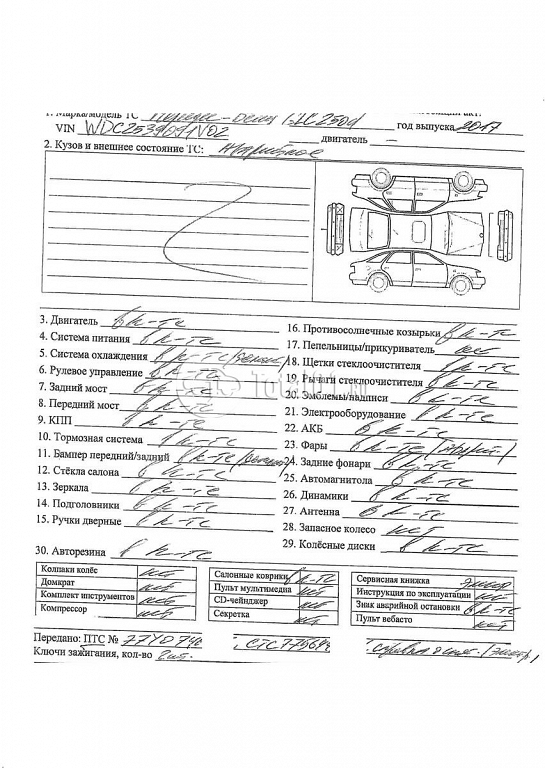 1. Марка/модель ТС
VIN WDC2539091V02 год выпуска 2017
2. Кузов и внешнее состояние ТС: двигатель —
3. Двигатель в к-те
4. Система питания в к-те
5. Система охлаждения в к-те
6. Рулевое управление в к-те
7. Задний мост в к-те
8. Передний мост в к-те
9. КПП в к-те
10. Тормозная система в к-те
11. Бампер передний/задний в к-те
12. Стёкла салона в к-те
13. Зеркала в к-те
14. Подголовники в к-те
15. Ручки дверные в к-те
16. Противосолнечные козырьки в к-те
17. Пепельницы/прикуриватель нет
18. Щетки стеклоочистителя в к-те
19. Рычаги стеклоочистителя в к-те
20. Эмблемы/надписи в к-те
21. Электрооборудование в к-те
22. АКБ в к-те
23. Фары в к-те
24. Задние фонари в к-те
25. Автомагнитола в к-те
26. Динамики в к-те
27. Антенна в к-те
28. Запасное колесо нет
29. Колёсные диски в к-те
30. Авторезина в к-те
Колпаки колёс нет
Домкрат нет
Комплект инструментов нет
Компрессор нет
Салонные коврики в к-те
Пульт мультимедиа нет
CD-чейнджер нет
Секретка нет
Сервисная книжка
Инструкция по эксплуатации нет
Знак аварийной остановки в к-те
Пульт вебасто нет
Передано: ПТС №
Ключи зажигания, кол-во